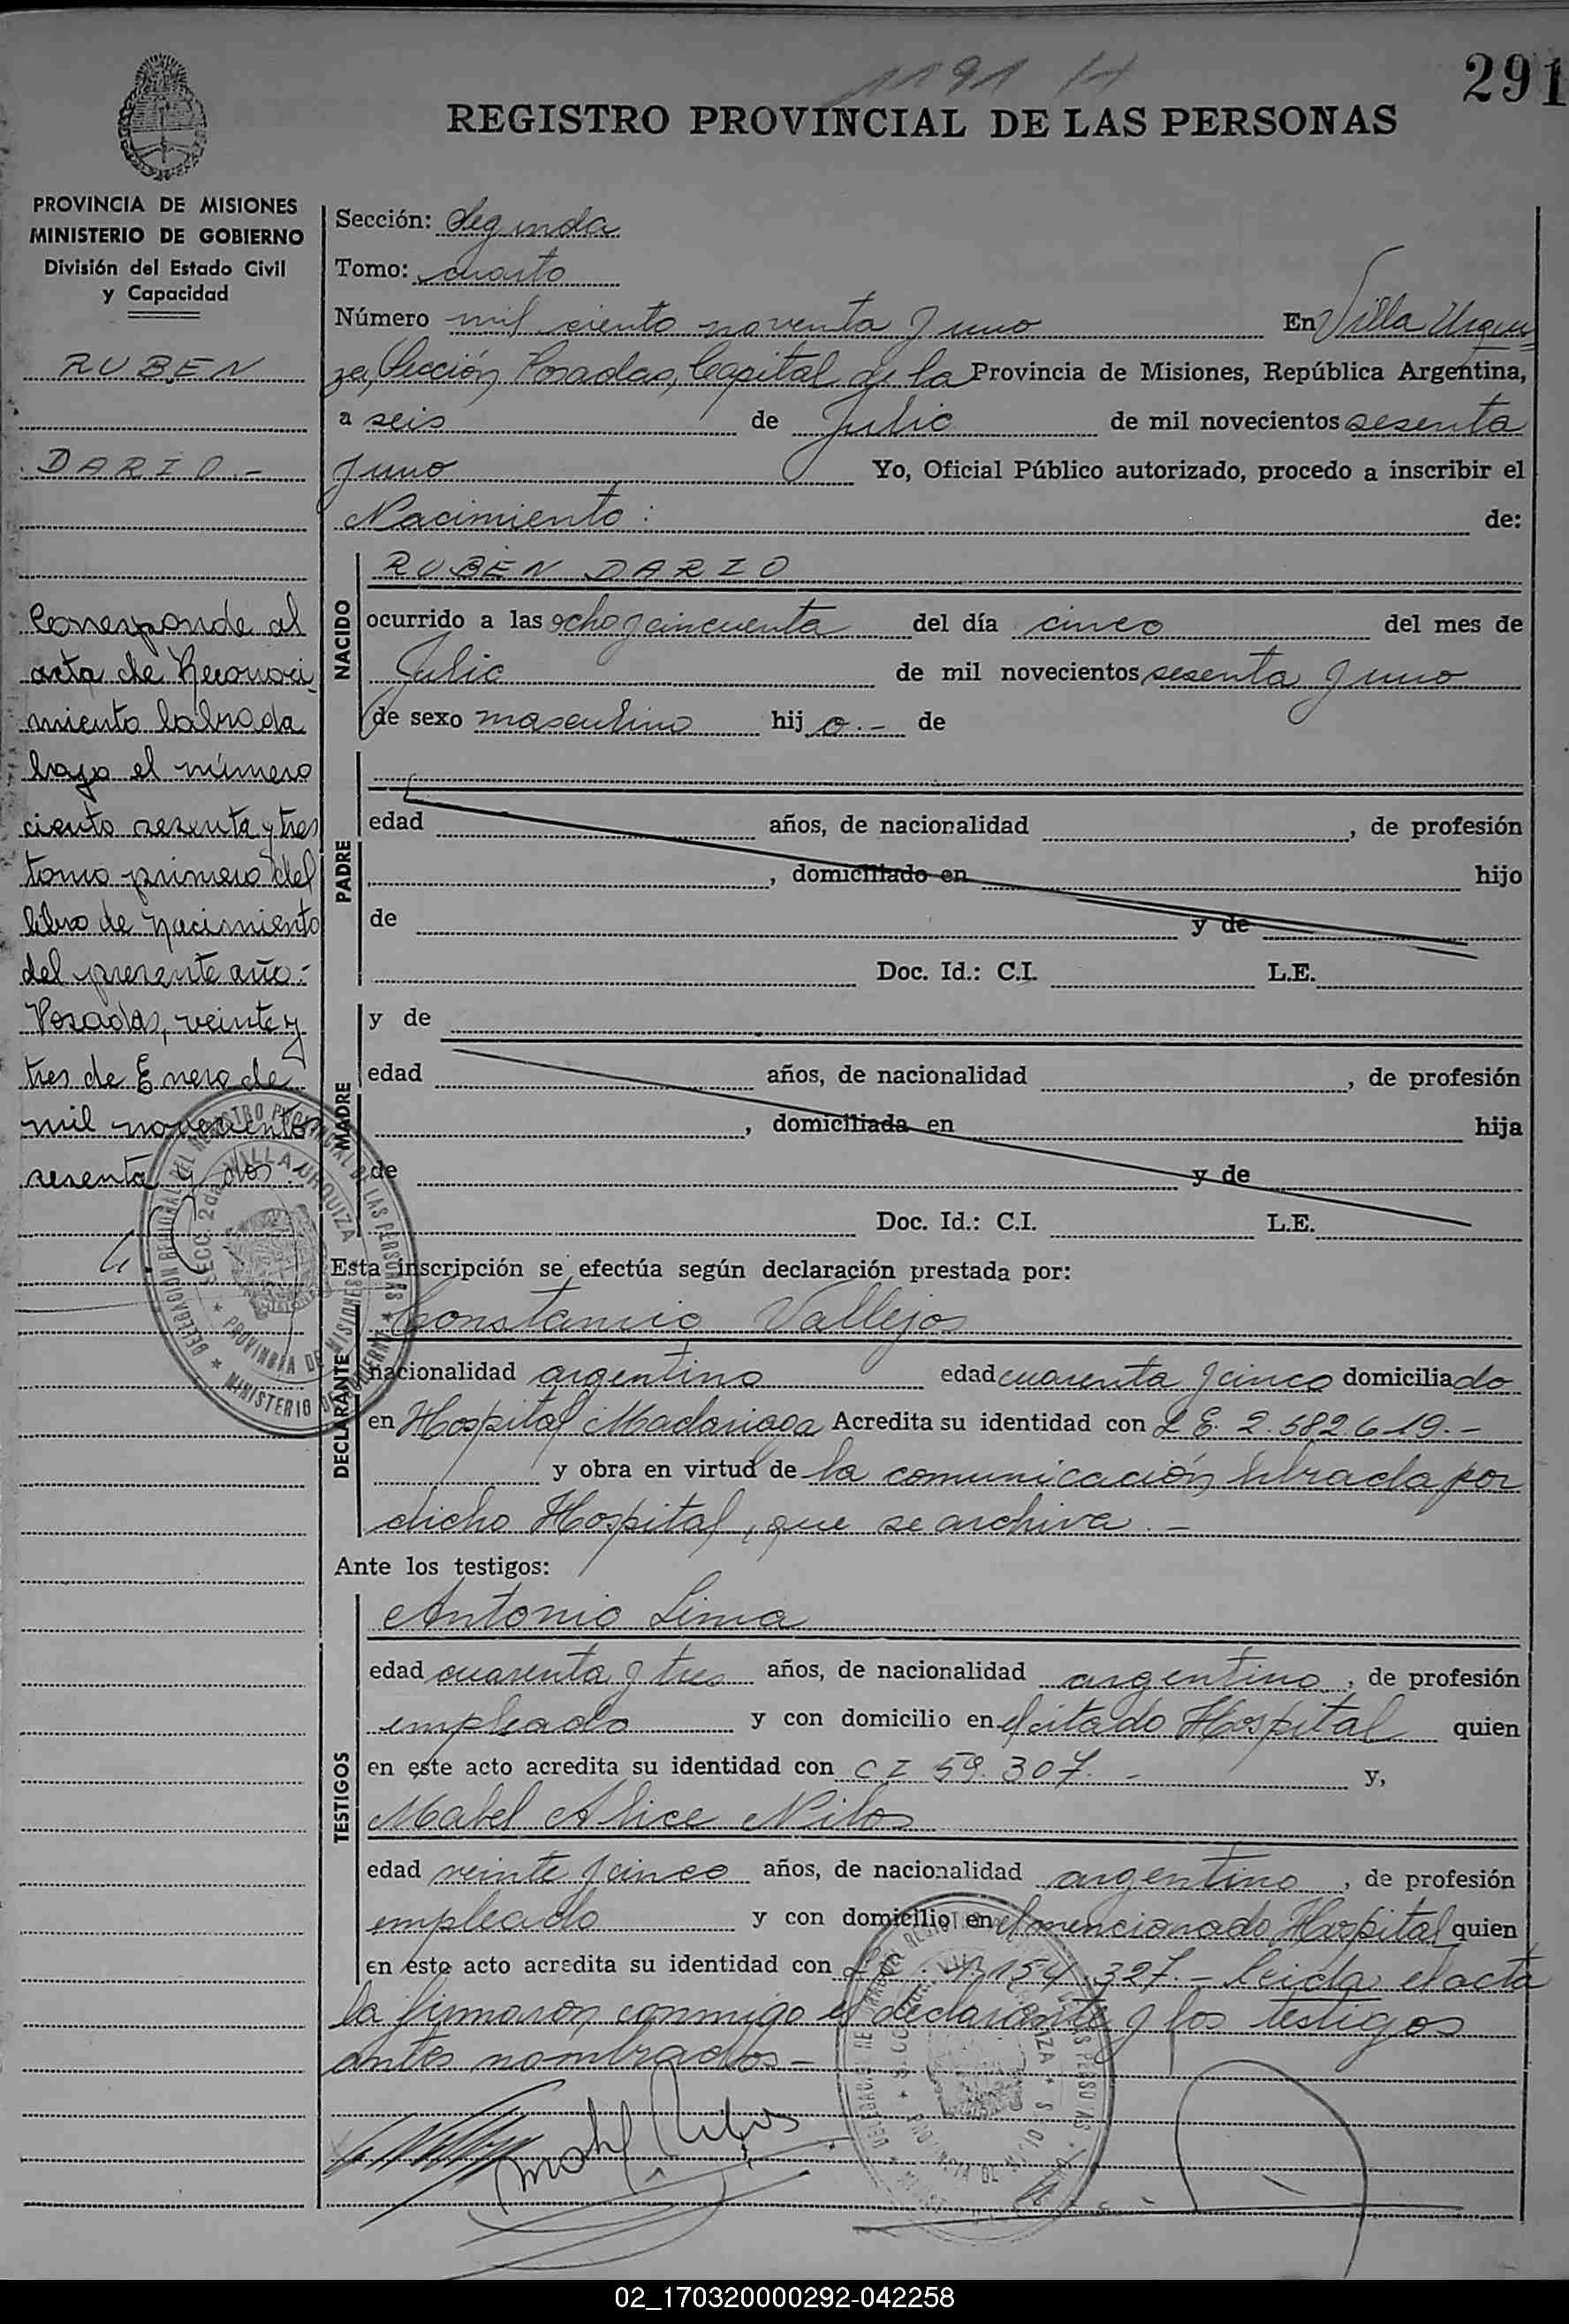 1191 H
291
REGISTRO PROVINCIAL DE LAS PERSONAS
PROVINCIA DE MISIONES
MINISTERIO DE GOBIERNO
División del Estado Civil
y Capacidad
RUBEN
DARIO.-
Corresponde al
acta de Reconoci
miento labrada
bajo el número
ciento sesenta y tres
tomo primero del
libro de Nacimiento
del presente año.-
Posadas, veinte y
tres de Enero de
mil novecientos
sesenta y dos.-
DELEGACION REGIONAL DEL REGISTRO PROVINCIAL DE LAS PERSONAS
SECC. 2da VILLA URQUIZA
PROVINCIA DE MISIONES
MINISTERIO DE GOBIERNO
Sección: Segunda
Tomo: cuarto
Número mil ciento noventa y uno En Villa Urqui
za, Sección, Posadas, Capital de la Provincia de Misiones, República Argentina,
a seis de Julio de mil novecientos sesenta
y uno Yo, Oficial Público autorizado, procedo a inscribir el
Nacimiento: de:
NACIDO
RUBEN DARIO
ocurrido a las ocho y cincuenta del día cinco del mes de
Julio de mil novecientos sesenta y uno
de sexo masculino hijo.- de
PADRE
edad años, de nacionalidad , de profesión
, domiciliado en hijo
de y de
Doc. Id.: C.I. L.E.
MADRE
y de
edad años, de nacionalidad , de profesión
, domiciliada en hija
de y de
Doc. Id.: C.I. L.E.
Esta inscripción se efectúa según declaración prestada por:
DECLARANTE
Constancio Vallejos
nacionalidad argentino edad cuarenta y cinco domiciliado
en Hospital Madariaga Acredita su identidad con L E. 2.582.619.-
y obra en virtud de la comunicación librada por
dicho Hospital, que se archiva.-
Ante los testigos:
TESTIGOS
Antonio Lima
edad cuarenta y tres años, de nacionalidad argentino, de profesión
empleado y con domicilio en el citado Hospital quien
en este acto acredita su identidad con C I 59.307.- y,
Mabel Alice
edad veinte y cinco años, de nacionalidad argentina, de profesión
empleado y con domicilio en el mencionado Hospital quien
en este acto acredita su identidad con 154.327.- Leida el acta
la firmaron conmigo el declarante y los testigos
antes nombrados.-
02_170320000292-042258